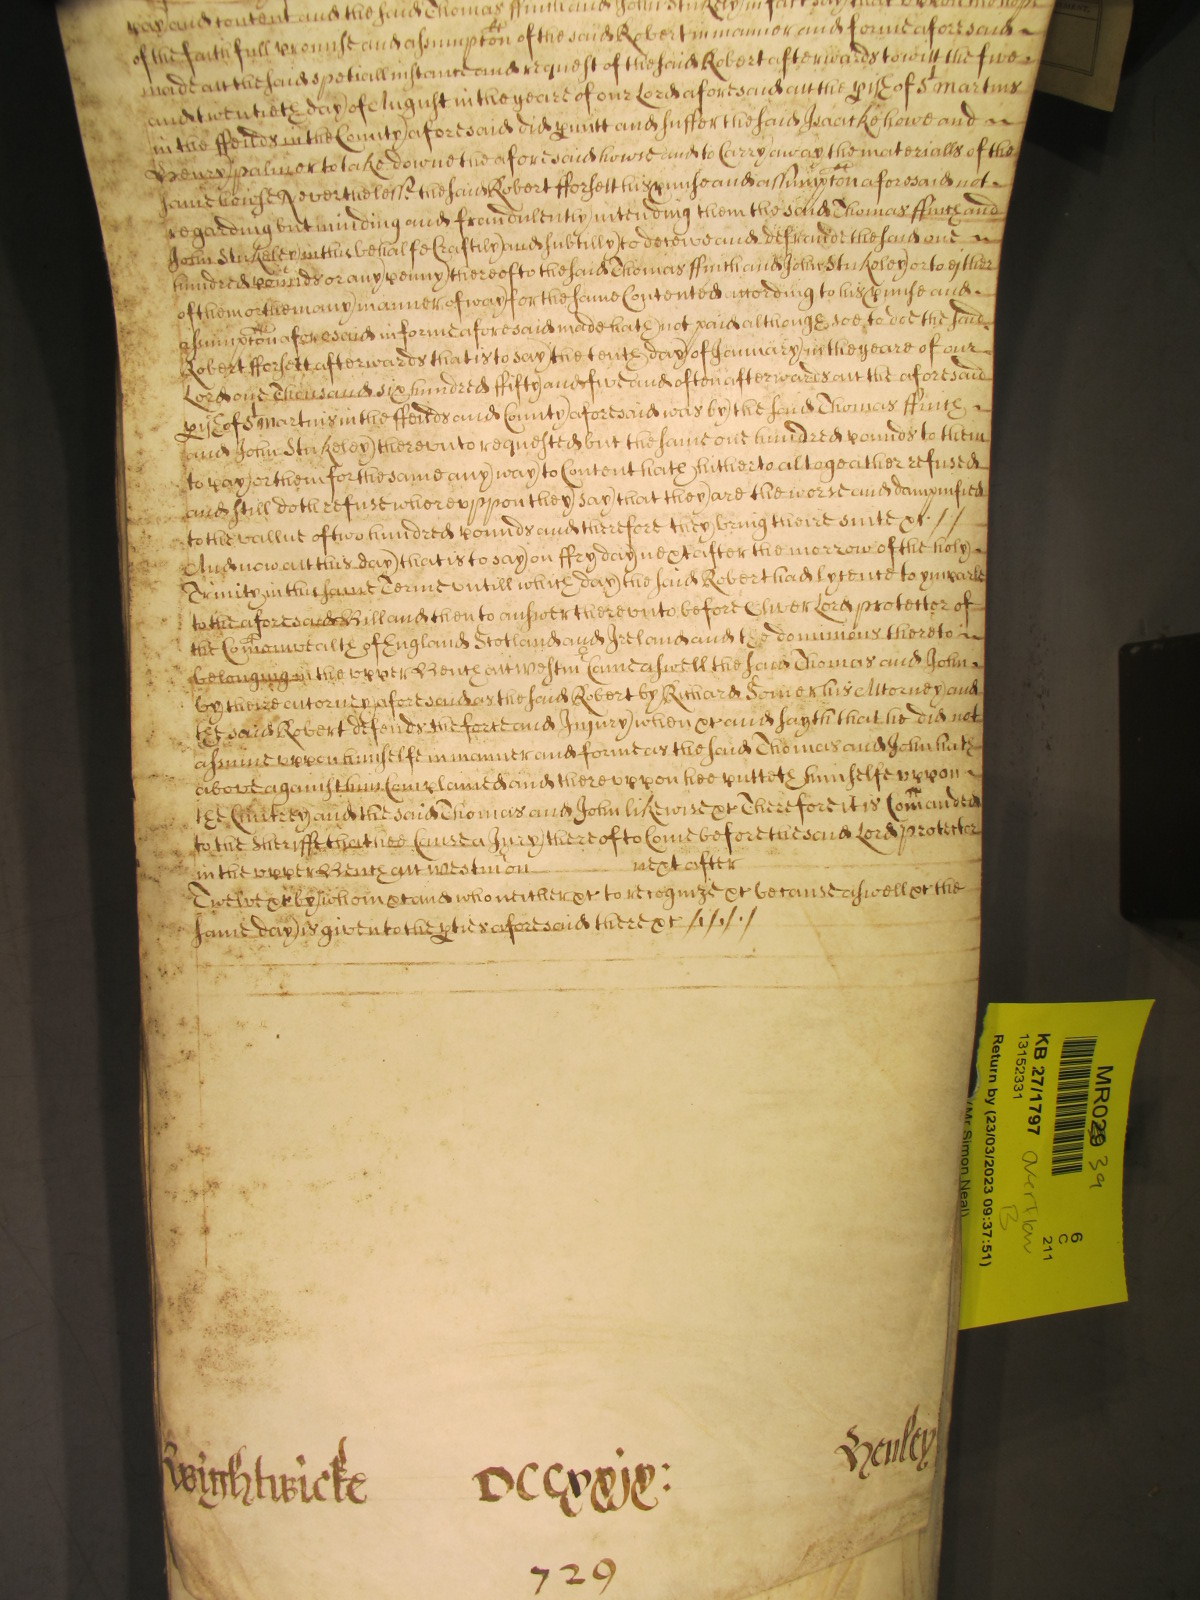 pay and content and the said Thomas ffinch and John Stukeley in fact say that upon the hope
of the faithfull promise and assumpcon of the said Robert in manner and forme aforesaid
made att the said speciall instance and request of the said Robert afterwards to witt the five
and twentieth day of August in the yeare of our Lord aforesaid att the pish of St Martins
in the ffeilds in the County aforesaid did pmitt and suffer the said Isaacke howe and
Henry palmer to take downe the aforesaid howse and to Carry away the materialls of the
same howse Neverthelesse the said Robert fforsett his pmise and assumpcon aforesaid not
regarding but minding and fraudulently intending them the said Thomas ffinch and
John Stukeley in this behalfe Craftily and subtilly to deceive and defraude the said one
hundred pounds or any penny thereof to the said Thomas ffinch and John Stukeley or to either
of them or them any manner of way for the same Contented according to his pmise and
assumpcon aforesaid in forme aforesaid made hath not paid although soe to doe the said
Robert fforsett afterwards that is to say the tenth day of January in the yeare of our
Lord one Thousand six hundred ffifty and five and often afterwards att the aforesaid
pish of St Martins in the ffeilds and County aforesaid was by the said Thomas ffinch
and John Stukeley therevnto requested but the same one hundred pounds to them
to pay or them for the same any way to Content hath hitherto altogeather refused
and still doth refuse wherevppon they say that they are the worse and dampnified
to the vallue of two hundred pounds and therefore they bring theire suite &c //
And now att this day that is to say on ffryday next after the morrow of the holy
Trinity in this same Terme vntill which day the said Robert had lycence to ymparle
to the aforesaid Bill and then to answer therevnto before Oliver Lord protector of
the Comonwealth of England Scotland and Ireland and the dominions thereto
belonging in the vpper Bench att Westm Came aswell the said Thomas and John
by theire attorney aforesaid as the said Robert by Richard Somer his Attorney and
the said Robert defends the force and Injury when &c and sayth that he did not
assume vppon himselfe in manner and forme as the said Thomas and John hath
above against him Complained and therevppon hee putteth himselfe vppon
the Cuntrey and the said Thomas and John likewise &c Therefore it is Comanded
to the Sheriffe that hee Cause a Jury thereof to Come before the said Lord protector
in the vpper Bench att Westmon next after
Twelve &c by whom &c and who neither &c to recognize &c because aswell &c the
same day is given to the pties aforesaid there &c /././././
Wightwicke DCCxxix: Henley
729
MR029 39
KB 27/1797 overflow B
13152331
6
C
211
Return by (23/03/2023 09:37:51)
(Mr Simon Neal)